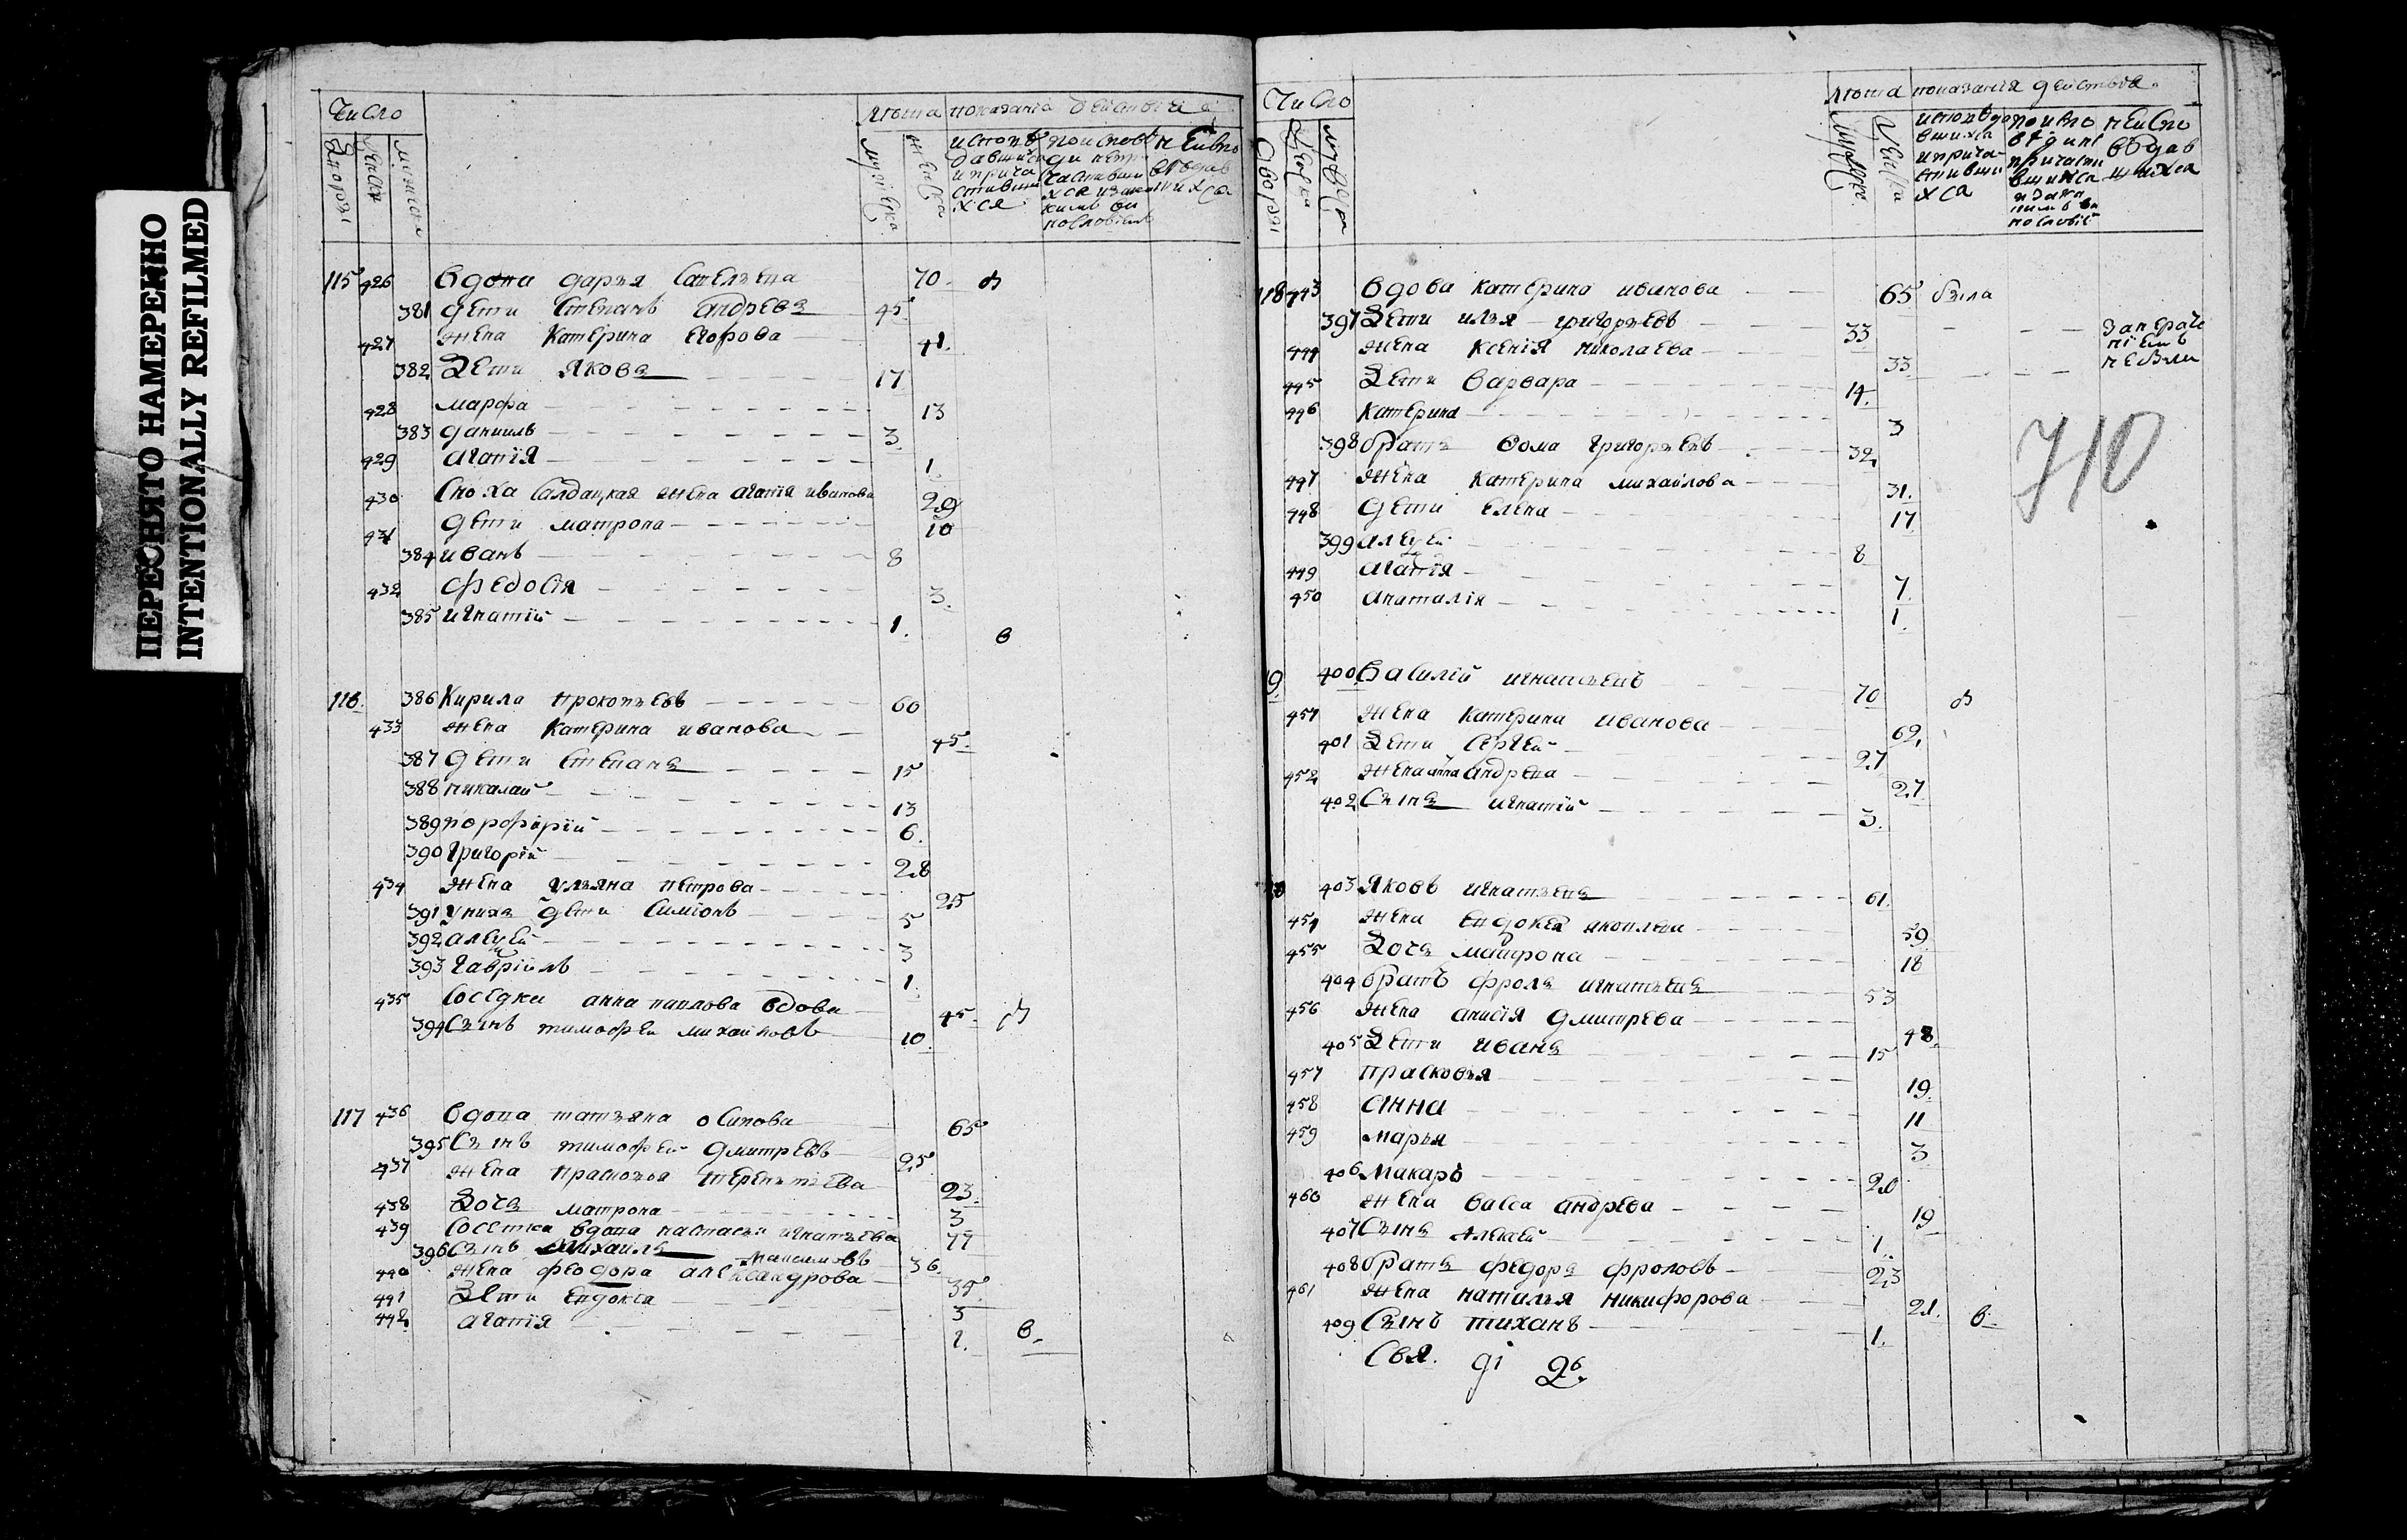 ПЕРЕСНЯТО НАМЕРЕННО
INTENTIONALLY REFILMED
Число
лѣта показанiа дѣйствiа
115 426 вдова дарья Савельева 70
381 дети Степанъ андревъ 45
427 жена Катерина Егорова 41.
382 Дети Яковъ 17
428 марфа 13
383 даниилъ 3.
429 агапiя 1.
430 Сноха Салдацкая жена агапiя иванова 29
431 дети матрона 10
384 иванъ 8
432 федосiя 3.
385 игнатiй 1. в
116. 386 Кирила прокопьевъ 60
433 жена Катерина иванова 45.
387 дети Степанъ 15
388 николай 13
389 порфирiй 6.
390 Григорiй 28
434 жена ульяна петрова 25
391 унихъ дети Симионъ 5
392 алецей 3
393 Гаврiилъ 1.
435 Соседка анна павлова вдова 45
394 Сынъ тимофей михайловъ 10.
117 436 вдова татьяна осипова 65
395 Сынъ тимофей дмитревъ 25.
437 жена прасковья терентьева 23.
438 Дочь матрона 3
439 Соседка вдова настасья игнатьева 77
396 Сынъ Михаилъ максимовъ 36.
440 жена феодора александрова 35.
441 Дети Евдокiа 3
442 агапiя 1. в.
Число
лѣта показанiя дѣйства.
118 443 вдова катерина иванова 65 была
397 Дети илья григорьевъ 33
444 жена Ксенiя николаева 33
445 Дети варвара 14.
446 катерина 3
398 братъ Фома григорьевъ 32
447 жена катерина михайлова 31.
448 дети елена 17
399 алецей 8
449 агапiя 7.
450 анаталiя 1.
710
400 Василiй игнатьевъ 70
451 жена катерина иванова 62.
401 Дети Сергей 27
452 жена анна андрева 27.
402 Сынъ игнатiй 3.
403 Яковъ игнатьевъ 61.
454 жена 59
455 Дочь матрона 18
404 братъ фролъ игнатьевъ 53
456 жена анисiя дмитрева 48.
405 Дети иванъ 15
457 прасковья 19
458 анна 11
459 марья 3
406 Макаръ 20
460 жена васса андрева 19
407 Сынъ Алекей 1.
408 братъ федоръ фроловъ 23
461 жена наталья никифорова 21. в.
409 Сынъ тиханъ 1.
Свя.